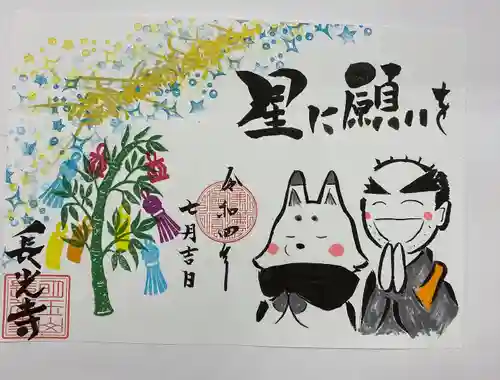 星に願いを
令和四年
七月吉日
長光寺